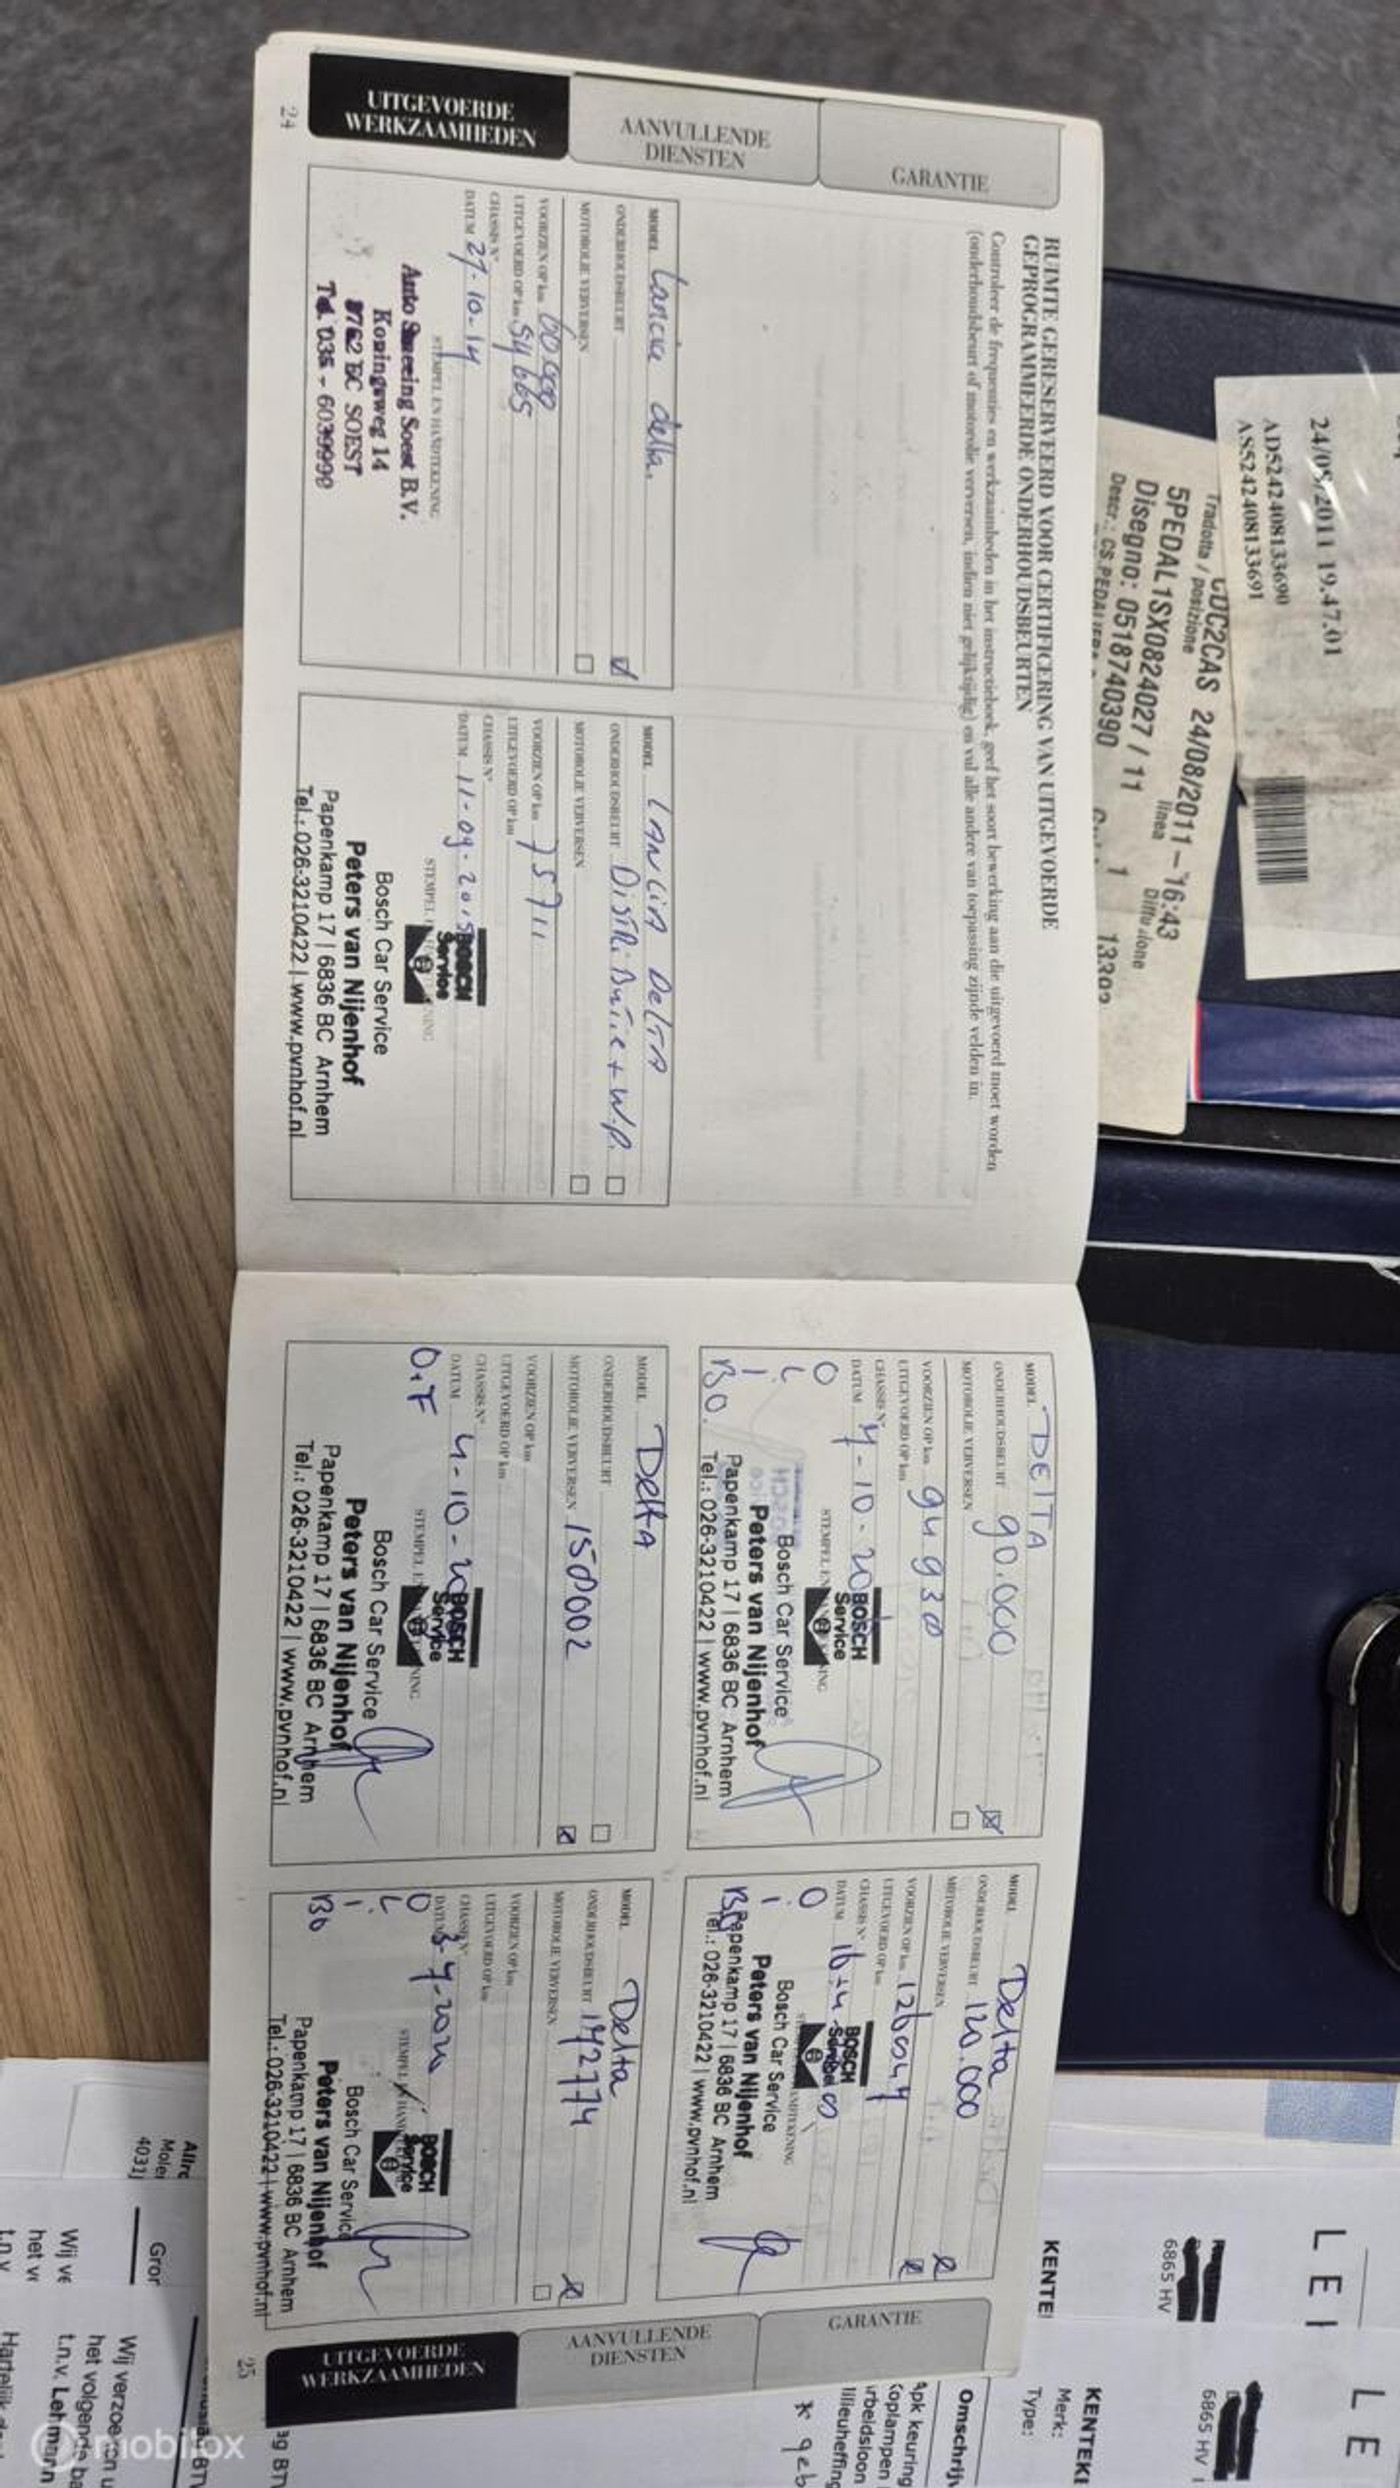 UITGEVOERDE
WERKZAAMHEDEN
AANVULLENDE
DIENSTEN
GARANTIE
24
RUIMTE GERESERVEERD VOOR CERTIFICERING VAN UITGEVOERDE
GEPROGRAMMEERDE ONDERHOUDSBEURTEN
Controleer de frequenties en werkzaamheden in het instructieboek, geef het soort bewerking aan die uitgevoerd moet worden
(onderhoudsbeurt of motorolie verversen, indien niet gelijktijdig) en vul alle andere van toepassing zijnde velden in.
MODEL Lancia delta.
ONDERHOUDSBEURT
MOTOROLIE VERVERSEN
VOORZIEN OP km 60.000
UITGEVOERD OP km 54665
CHASSIS N°
DATUM 27-10-14
STEMPEL EN HANDTEKENING
Auto Smeeing Soest B.V.
Koningsweg 14
3762 EC SOEST
Tel. 035 - 6039999
MODEL LANCIA DELTA
ONDERHOUDSBEURT DISTRIBUTIE + W.P.
MOTOROLIE VERVERSEN
VOORZIEN OP km 75711
UITGEVOERD OP km
CHASSIS N°
DATUM 11-09-2015
BOSCH
Service
Bosch Car Service
Peters van Nijenhof
Papenkamp 17 | 6836 BC Arnhem
Tel.: 026-3210422 | www.pvnhof.nl
MODEL DELTA
ONDERHOUDSBEURT 90.000
MOTOROLIE VERVERSEN
VOORZIEN OP km 94930
UITGEVOERD OP km
CHASSIS N°
DATUM 7-10-20
BOSCH
Service
Bosch Car Service
Peters van Nijenhof
Papenkamp 17 | 6836 BC Arnhem
Tel.: 026-3210422 | www.pvnhof.nl
MODEL Delta
ONDERHOUDSBEURT 120.000
MOTOROLIE VERVERSEN
VOORZIEN OP km 126047
UITGEVOERD OP km
CHASSIS N°
DATUM 16-4
BOSCH
Service
Bosch Car Service
Peters van Nijenhof
Papenkamp 17 | 6836 BC Arnhem
Tel.: 026-3210422 | www.pvnhof.nl
MODEL Delta
ONDERHOUDSBEURT
MOTOROLIE VERVERSEN 158002
VOORZIEN OP km
UITGEVOERD OP km
CHASSIS N°
DATUM 4-10-20
O.F
BOSCH
Service
Bosch Car Service
Peters van Nijenhof
Papenkamp 17 | 6836 BC Arnhem
Tel.: 026-3210422 | www.pvnhof.nl
MODEL Delta
ONDERHOUDSBEURT 142774
MOTOROLIE VERVERSEN
VOORZIEN OP km
UITGEVOERD OP km
CHASSIS N°
DATUM 3-7-2020
BOSCH
Service
Bosch Car Service
Peters van Nijenhof
Papenkamp 17 | 6836 BC Arnhem
Tel.: 026-3210422 | www.pvnhof.nl
GARANTIE
AANVULLENDE
DIENSTEN
UITGEVOERDE
WERKZAAMHEDEN
25
24/08/2011 19.47.01
AD52424081336​90
AS52424081336​91
CDC2CAS 24/08/2011-16:43
Tradotta / posizione linea Diffusione
5PEDAL1SX0824027 / 11 1
Disegno: 05187403​90
KENTE
6865 HV
6865 HV
KENTEKE
Merk:
Type:
Omschrijv
Apk keuring
Koplampen
Arbeidsloon
Milieuheffing
* geb
Wij verzoe
het volgende
t.n.v. Lehmann
Wij ve
het v
t.n.v
Gror
4031
mobilox